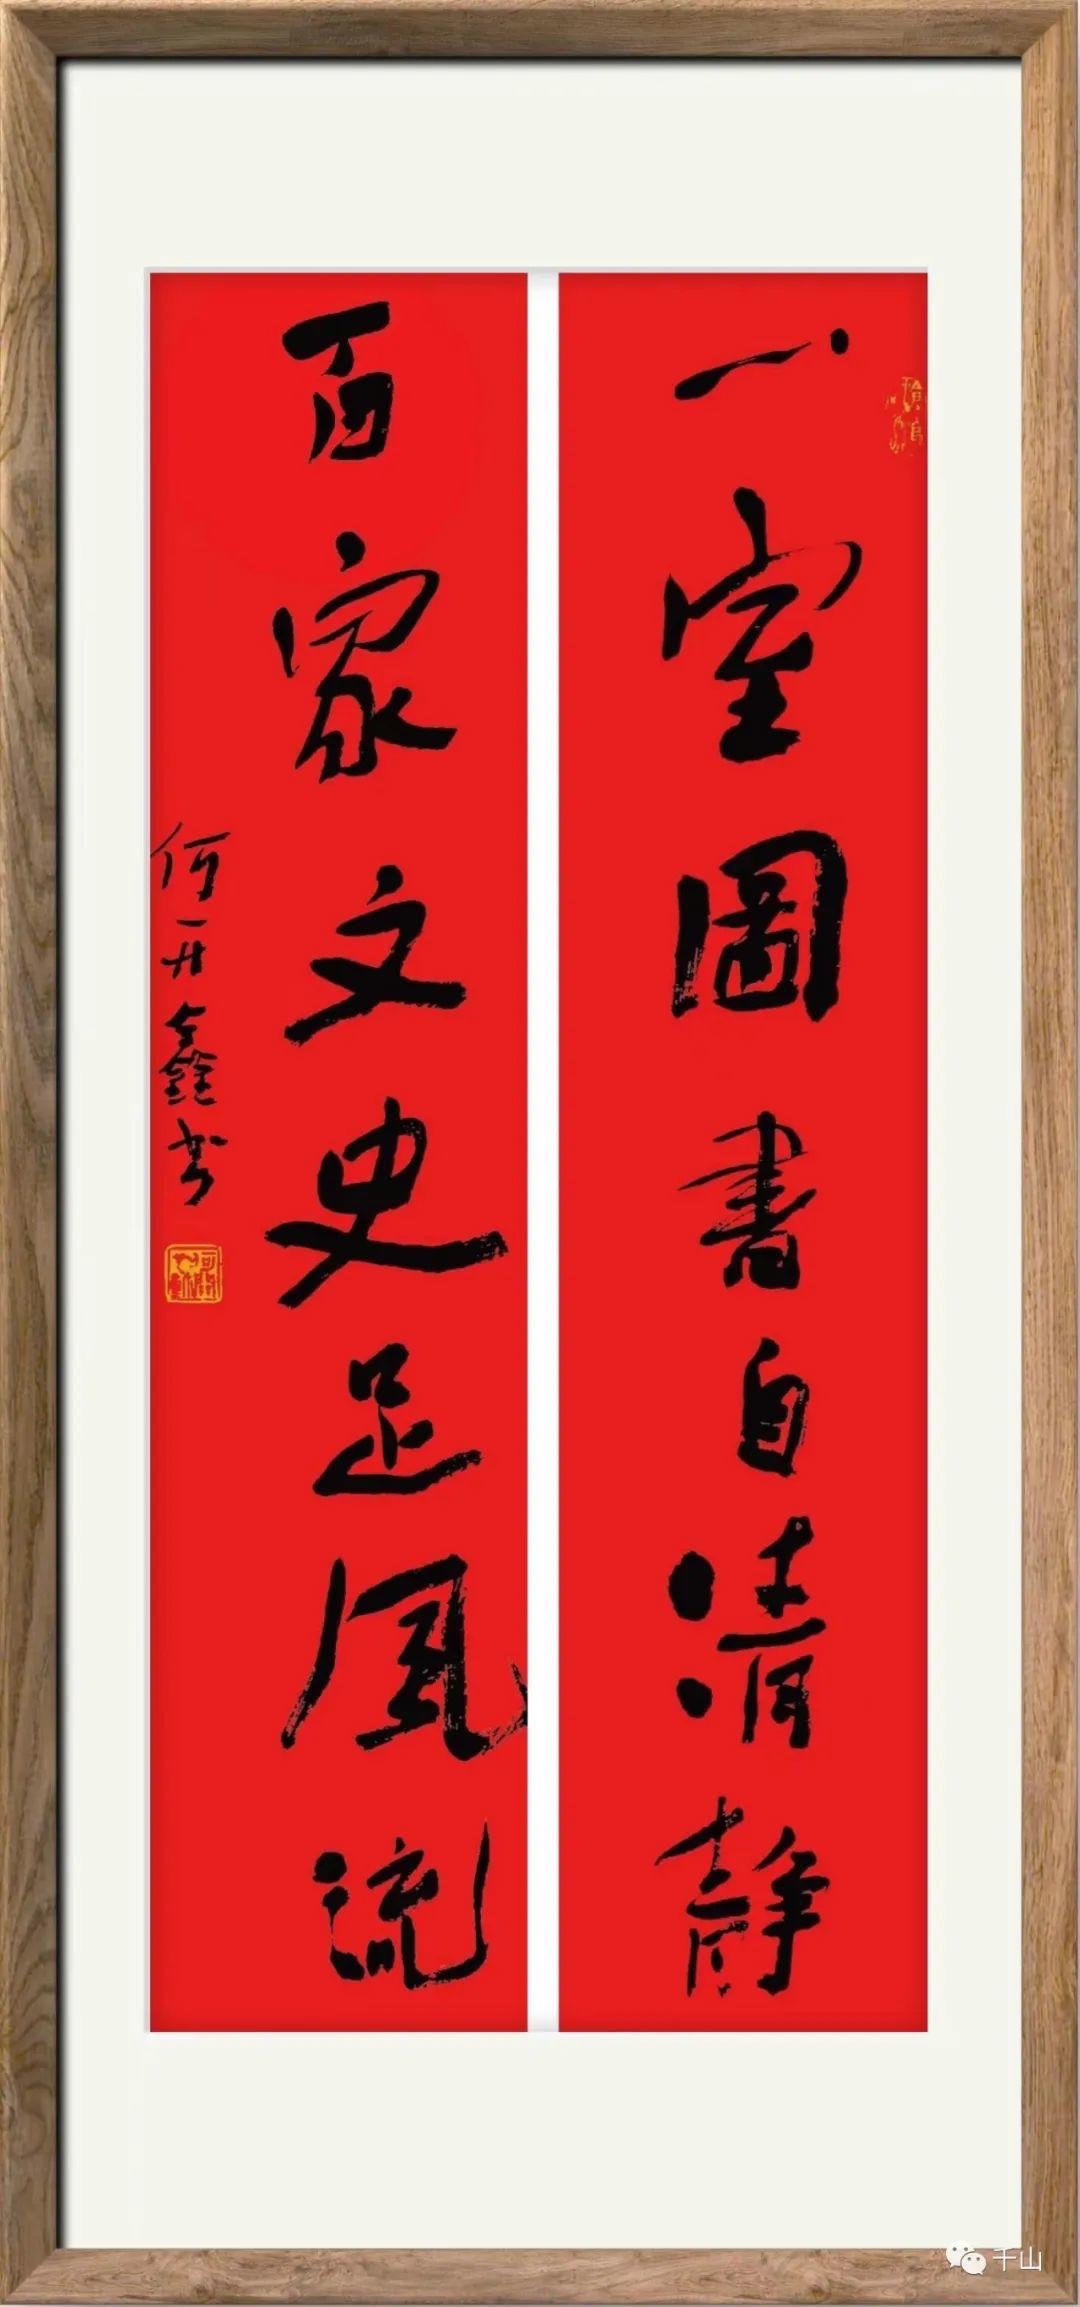 一室圖書自清静
百家文史足風流
何开鑫书
千山